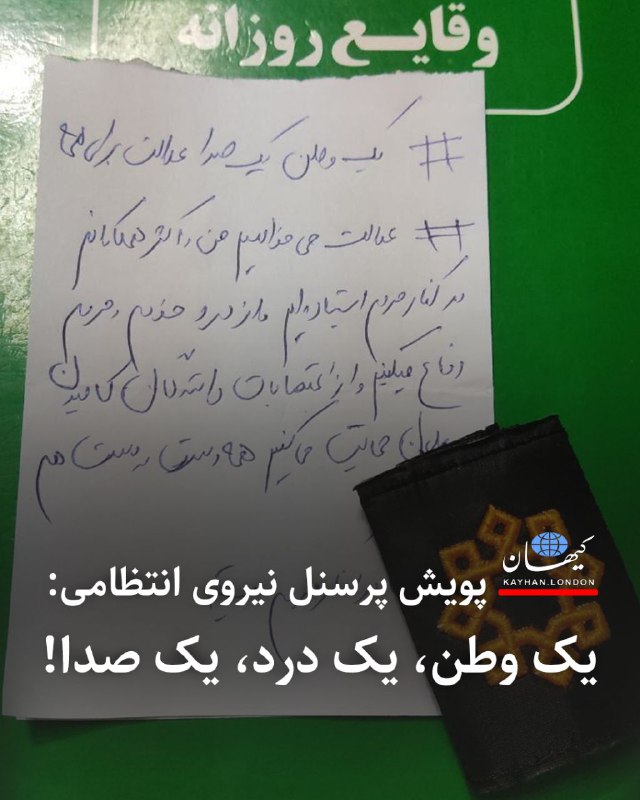 وقایع روزانه
# یک وطن یک صدا عدالت برای همه
# عدالت می خواهیم من و اکثر همکارانم
در کنار مردم ایستاده‌ایم و از درد خود و مردم
دفاع میکنیم و از اعتصابات دانشگاه کامیون
داران حمایت می کنیم همه دست به دست هم
کیهان
KAYHAN.LONDON
پویش پرسنل نیروی انتظامی:
یک وطن، یک درد، یک صدا!